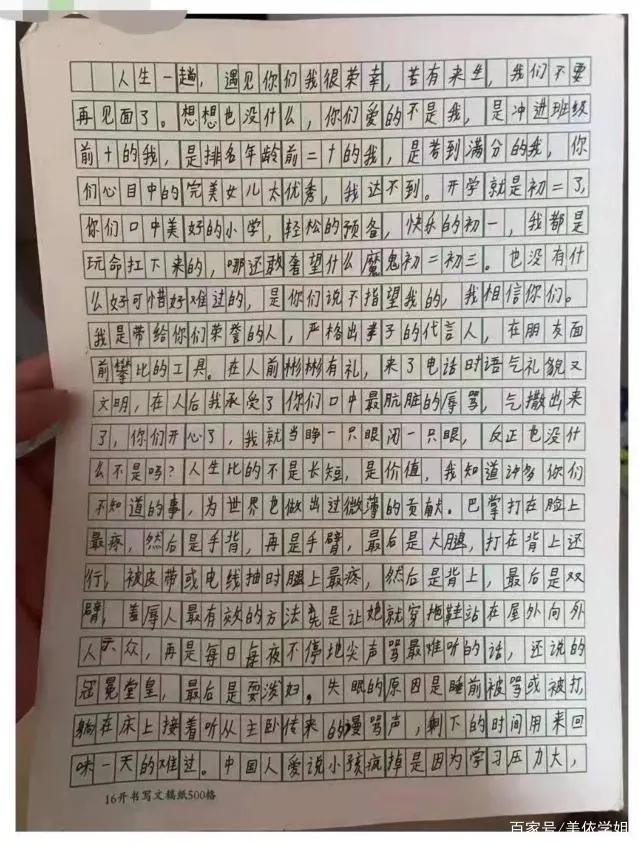 人生一趟，遇见你们我很荣幸，若有来生，我们不要
再见面了。想想也没什么，你们爱的不是我，是冲进班级
前十的我，是排名年龄前二十的我，是考到满分的我，你
们心目中的完美女儿太优秀，我达不到。开学就是初二了，
你们口中美好的小学，轻松的预备，快乐的初一，我都是
玩命扛下来的，哪还敢奢望什么魔鬼初二初三。也没有什
么好可惜好难过的，是你们说不指望我的，我相信你们。
我是带给你们荣誉的人，严格出孝子的代言人，在朋友面
前攀比的工具。在人前彬彬有礼，来了电话时语气礼貌又
文明，在人后我承受了你们口中最肮脏的辱骂，气撒出来
了，你们开心了，我就当睁一只眼闭一只眼，反正也没什
么不是吗？人生比的不是长短，是价值，我知道许多你们
不知道的事，为世界也做出过微薄的贡献。巴掌打在脸上
最疼，然后是手背，再是手臂，最后是大腿，打在背上还
行，被皮带或电线抽时腿上最疼，然后是背上，最后是双
臂，羞辱人最有效的方法是让她就穿拖鞋站在屋外向外
人示众，再是每日每夜不停地尖声骂最难听的话，还说的
冠冕堂皇，最后是耍泼妇。失眠的原因是睡前被骂或被打，
躺在床上接着听从主卧传来的谩骂声，剩下的时间用来回
味一天的难过。中国人爱说小孩疯掉是因为学习压力大，
16开书写文稿纸500格
百家号/美依学姐